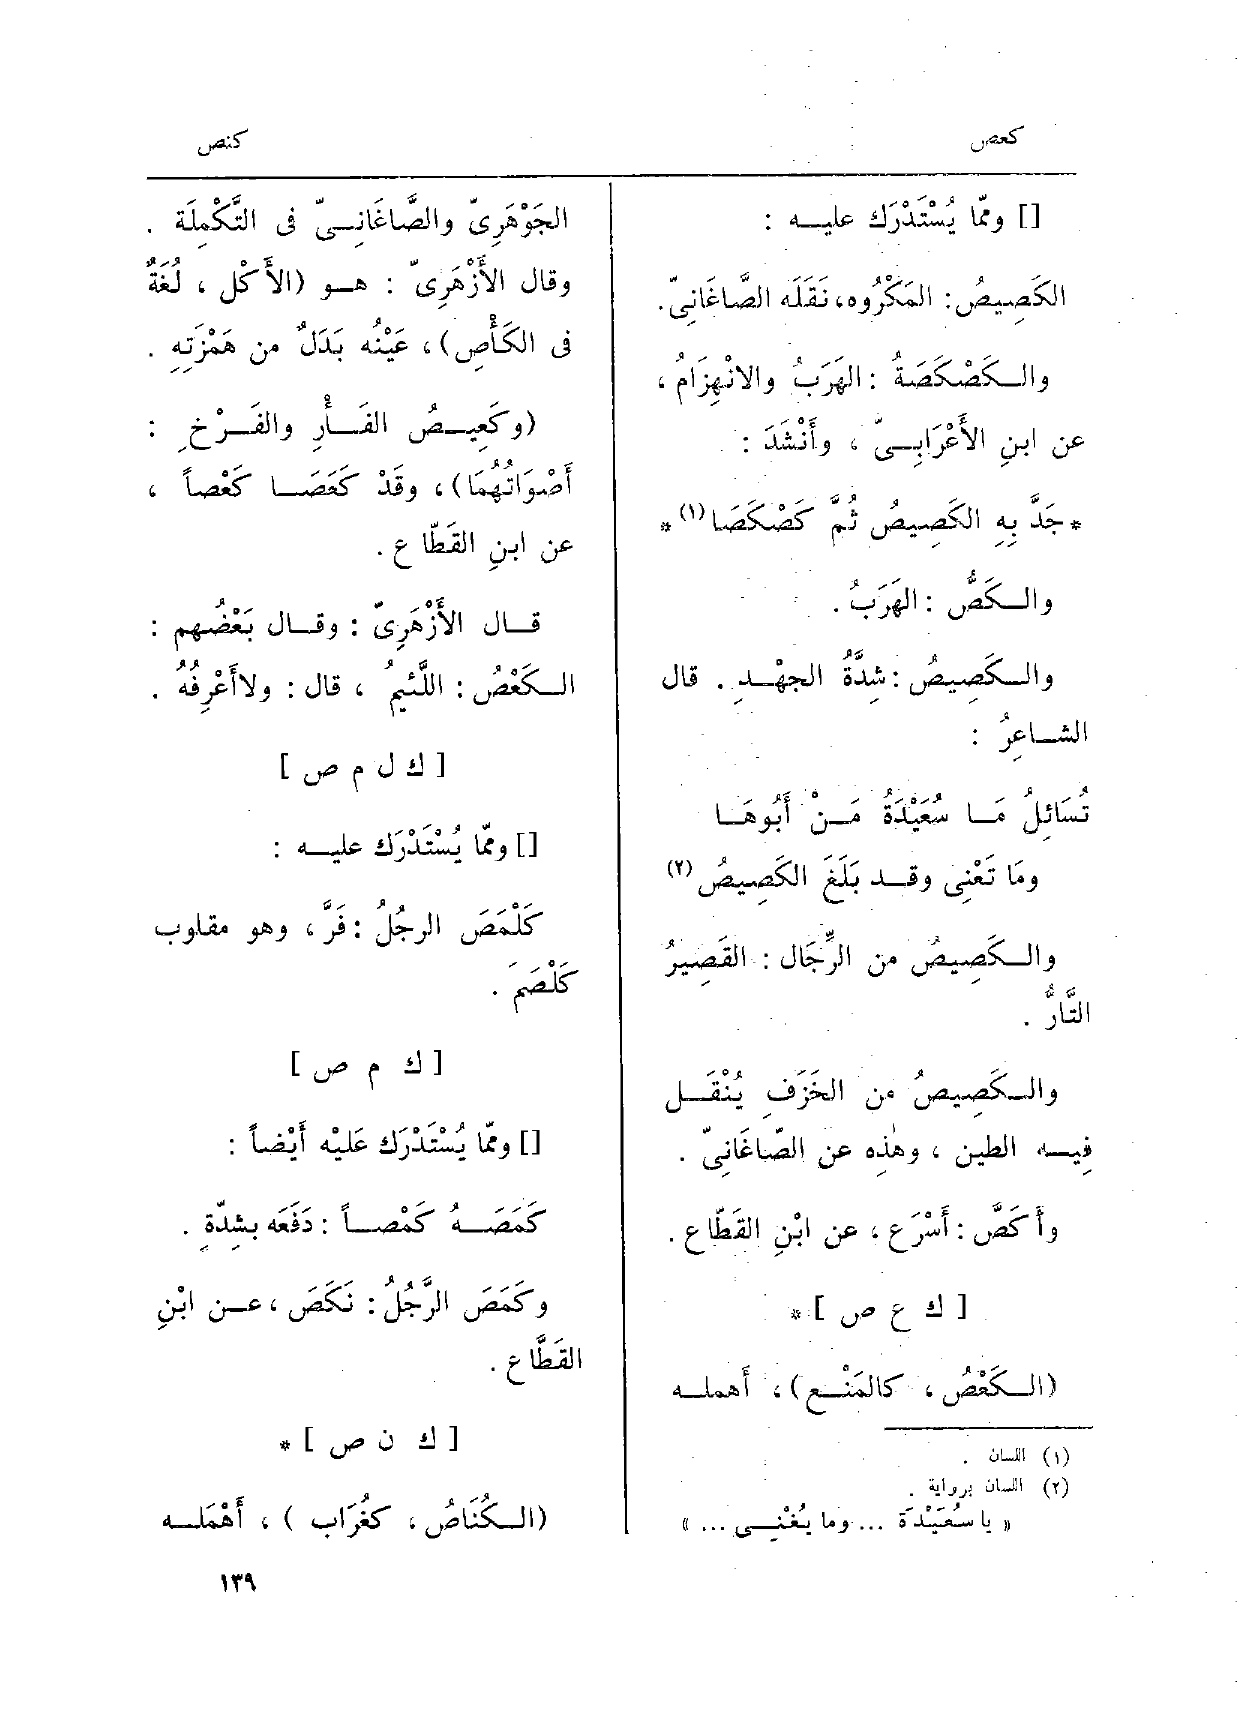 كعص
كنص
[] ومّا يُسْتَدْرَك عليـــه :
الكَصِيصُ: المَكْرُوه، نَقَلَه الصَّاغَانِىّ.
والـكَصْكَصَةُ : الهَرَبُ والانْهِزَامُ ،
عن ابنِ الأَعْرَابِــىّ ، وأَنْشَدَ :
* جَدَّ بِهِ الكَصِيصُ ثُمَّ كَصْكَصَا (١) *
والـكَصُّ : الهَرَبُ .
والـكَصِيصُ : شِدَّةُ الجهْــدِ . قال
الشــاعِرُ :
تُسَائِلُ مَــا سُعَيْدَةُ مَــنْ أَبُوهَــا
ومَا تَغْنِى وقــد بَلَغَ الكَصِيصُ (٢)
والـكَصِيصُ من الرِّجَال : القَصِيرُ
التَّارُّ .
والـكَصِيصُ من الخَزَفِ يُنْقَــل
فِيــه الطين ، وهٰذِه عن الصّاغَانِىّ .
وأَكَصَّ : أَسْرَع ، عن ابْنِ القَطّاع .
[ ك ع ص ] *
(الـكَعْصُ ، كالمَنْـع) ، أَهملــه
(١) اللسان .
(٢) اللسان برواية .
« يا سعُيَيْدَة ... وما يُغْنِــى ... »
الجَوْهَرِىّ والصَّاغَانِــىّ فى التَّكْمِلَة .
وقال الأَزْهَرِىّ : هــو (الأَكْل ، لُغَةٌ
فى الكَأْصِ) ، عَيْنُه بَدَلٌ من هَمْزَتِهِ .
(وكَعِيــصُ الفَــأْرِ والفَــرْخِ :
أَصْوَاتُهُمَا) ، وقَدْ كَعَصَــا كَعْصاً ،
عن ابنِ القَطّاع .
قــال الأَزْهَرِىّ : وقــال بَعْضُهم :
الـكَعْصُ : اللَّئيمُ ، قال : ولا أَعْرِفُهُ .
[ ك ل م ص ]
[] ومّا يُسْتَدْرَك عليــه :
كَلْمَصَ الرجُلُ : فَرَّ ، وهو مقلوب
كَلْصَمَ .
[ ك م ص ]
[] ومّا يُسْتَدْرَك عَلَيْه أَيْضاً :
كَمَصَــهُ كَمْصــاً : دَفَعَه بِشدّةٍ .
وكَمَصَ الرَّجُلُ : نَكَصَ ، عــن ابْنِ
القَطَّاع .
[ ك ن ص ] *
(الـكُنَاصُ ، كغُرَاب ) ، أَهْمَلــه
١٣٩